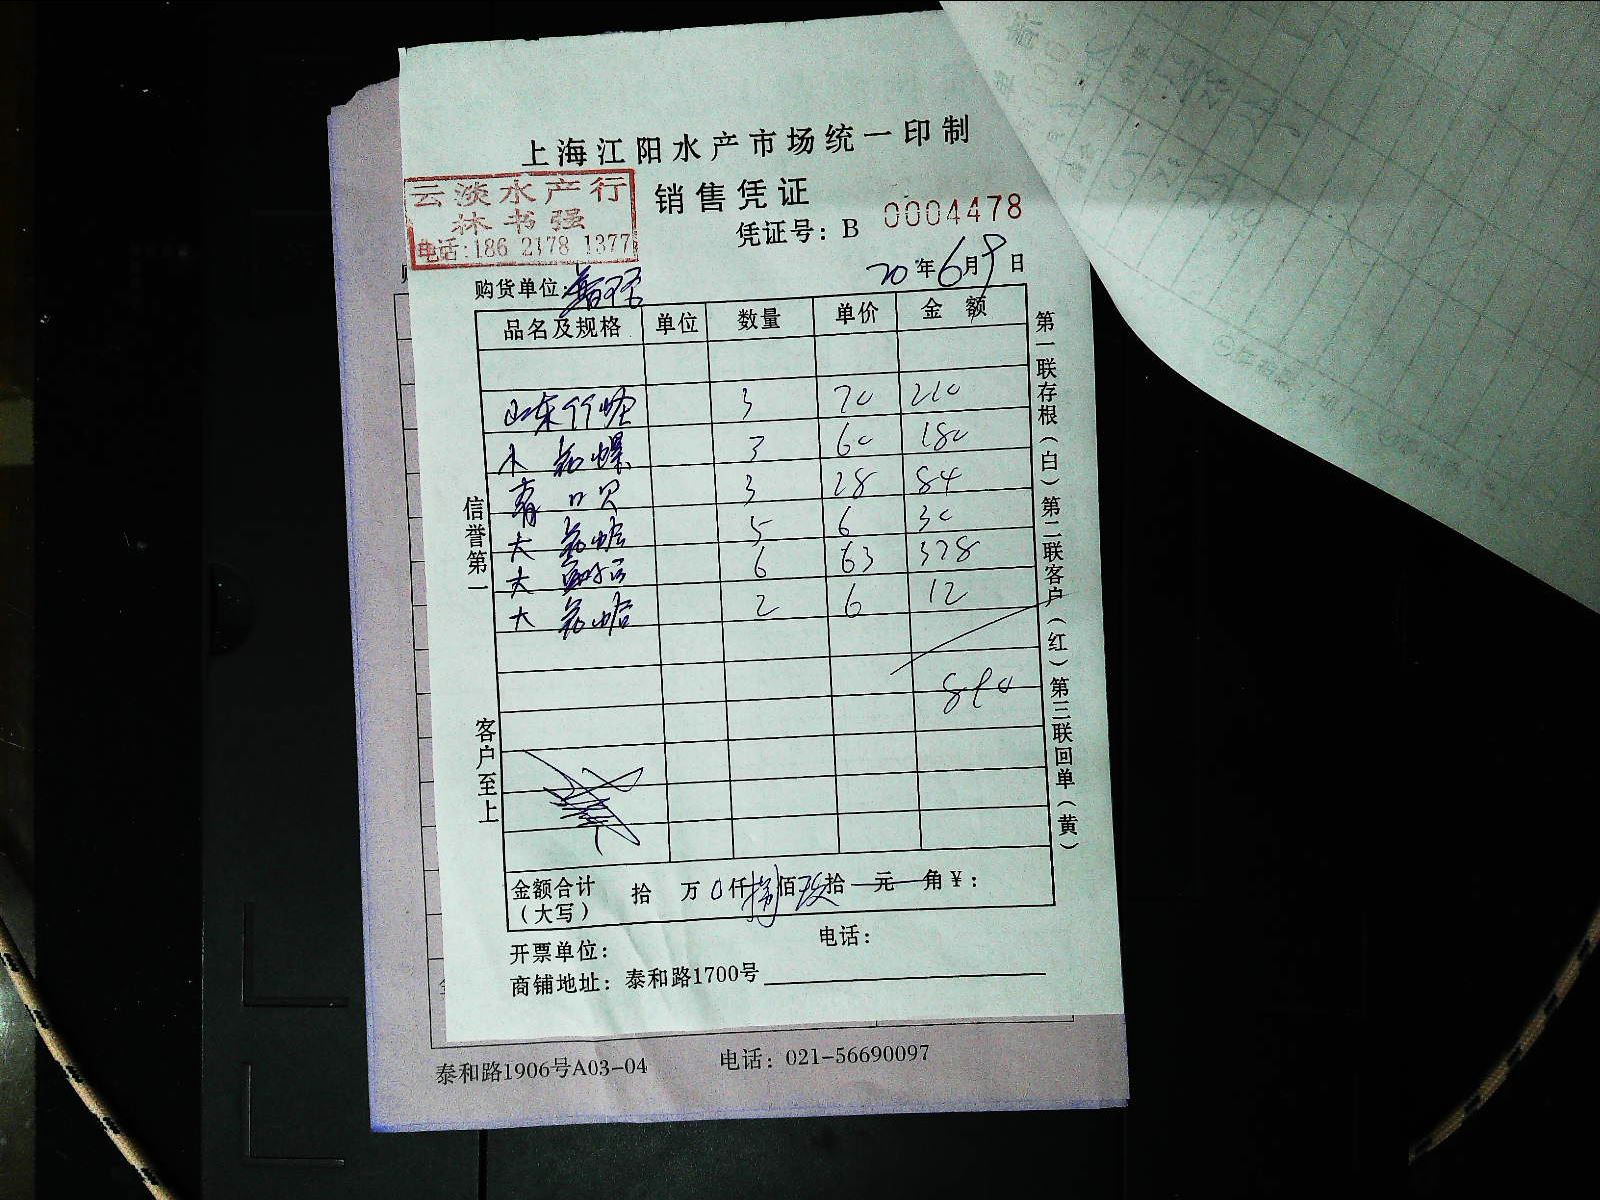 上海江阳水产市场统一印制
云淡水产行
林书强
电话:186 2178 1377
销售凭证
凭证号：B 0004478
购货单位:
20年6月9日
品名及规格 单位 数量 单价 金 额
山东竹蛏 3 70 210
小 花螺 3 60 180
青口贝 3 28 84
大 花蛤 5 6 30
大 6 63 378
大 花蛤 2 6 12
890
信誉第一
客户至上
第一联存根（白）第二联客户（红）第三联回单（黄）
金额合计（大写） 拾 万 0仟捌佰玖拾 元 角 ¥：
开票单位：
电话：
商铺地址：泰和路1700号
泰和路1906号A03-04 电话：021-56690097